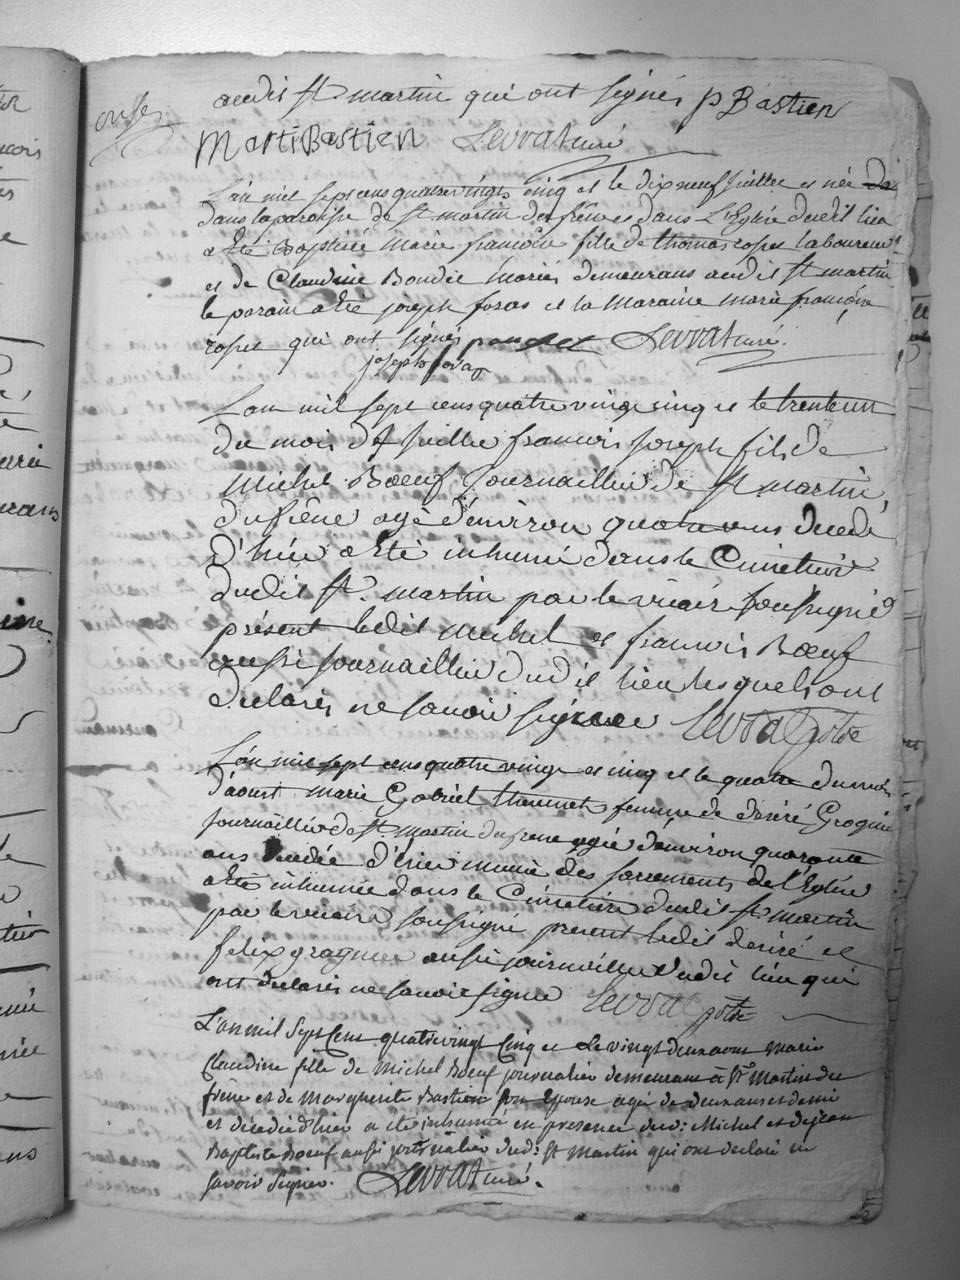 audit St martin qui ont signés p Bastien
Marti Bastien Levrat curé
L'an mil sept cens quatre vingts cinq et le dix neuf juillet est née
dans la paroisse de St martin du frêne et dans L'Eglise dudit lieu
a été Baptisée marie françoise fille de thomas rosset laboureur
et de Claudine Bondie Mariés demeurans audit St martin
le parain a été joseph foras et la Maraine marie françoise
rosset qui ont signés Levrat curé.
joseph foras
L'an mil sept cens quatre vingt cinq et le trente un
du mois de juillet francois joseph fils de
Michel Bœuf journaillier de St martin
du frêne agé d'environ quatre ans decedé
d'hier a eté inhumé dans le Cimetiere
dudit St. martin par le vicaire soussigné
présent ledit michel et francois Bœuf
aussi journaillier dudit lieu lesquels ont
declarés ne savoir signer Levrat ptre
L'an mil sept cens quatre vingt et cinq et le quatre du mois
d'aoust marie Gabriel femme de desiré Grognie
journaillier de St martin du frene agée d'environ quarante
ans decedée d'hier munie des sacrements de l'Eglise
a eté inhumée dans le Cimetiere dudit St martin
par le vicaire soussigné present ledit desiré et
felix aussi journaillier dudit lieu qui
ont declarés ne savoir signer Levrat ptre
L'an mil Sept Cens quatre vingt Cinq et Le vingt deux aout marie
Claudine fille de Michel Bœuf journalier demeurant à St Martin du
frêne et de Marguerite Bastien son Epouse agé de deux ans et demi
et décédée d'hier a été inhumée en presence dud: Michel et de jean
Baptiste Bœuf aussi journalier dud: St Martin qui ont declaré ne
savoir signer. Levrat curé.